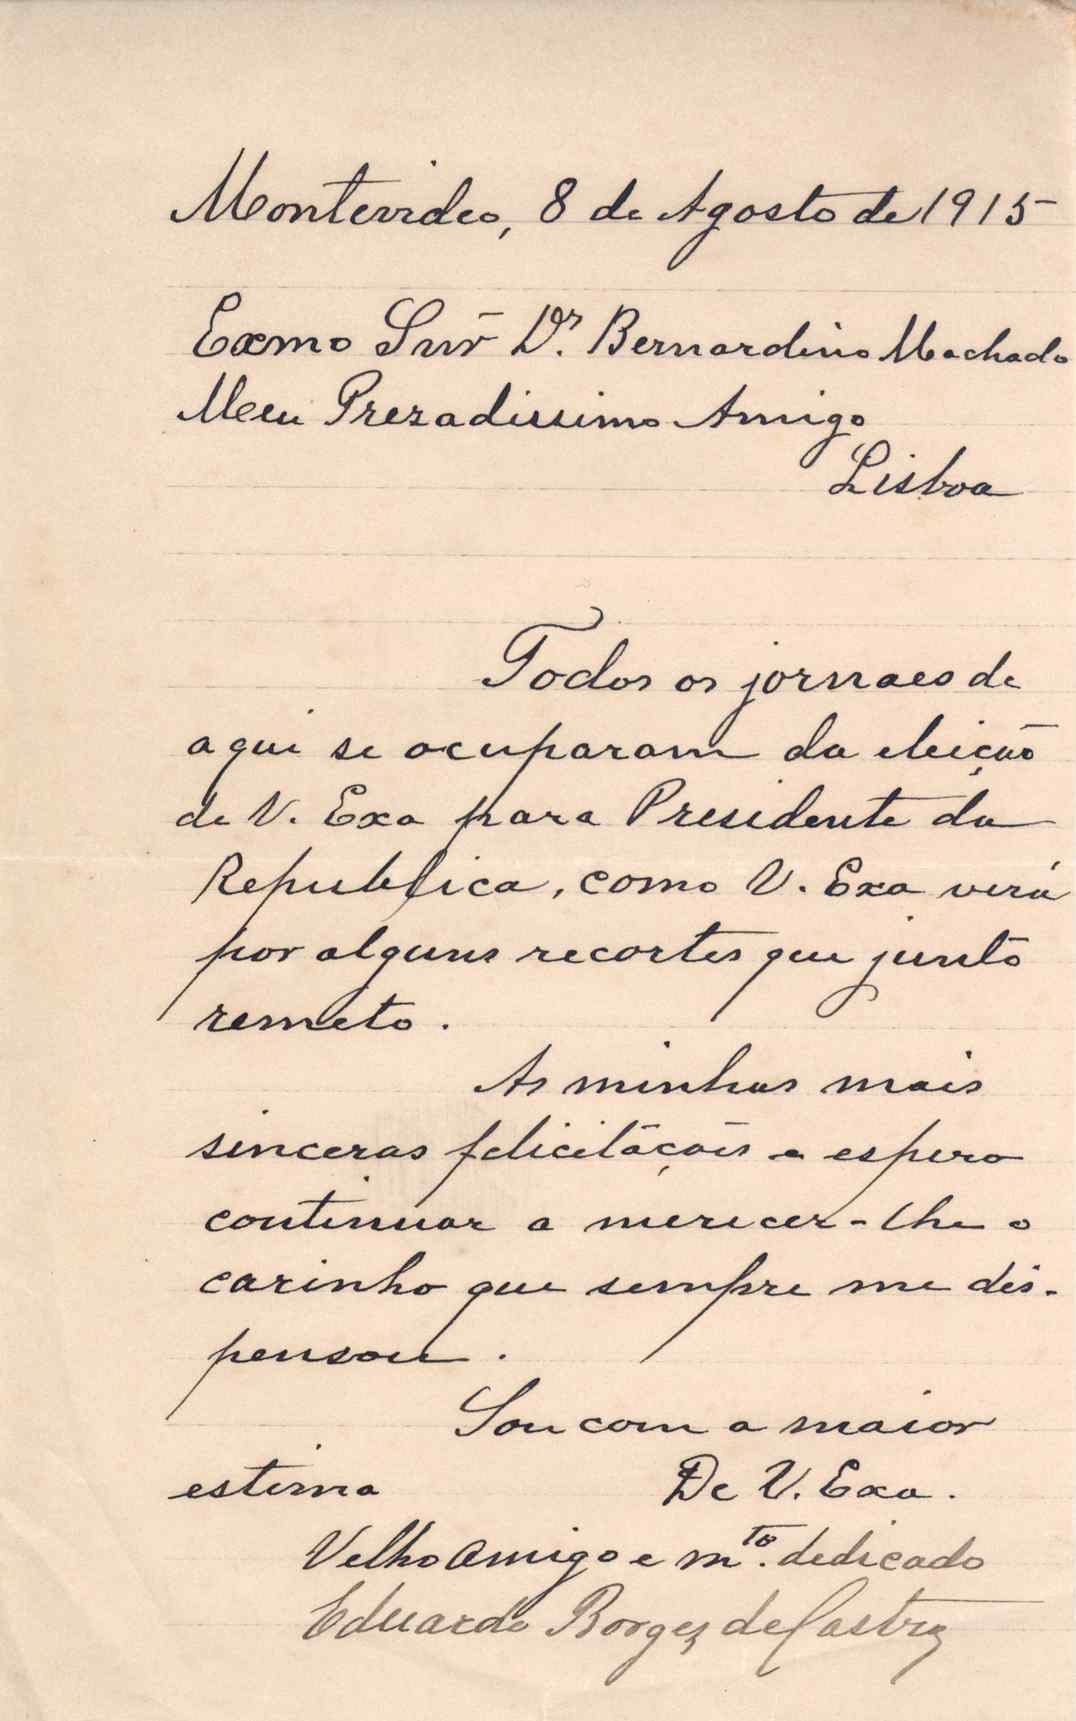 Montevideo, 8 de Agosto de 1915
Exmo Snr Dr. Bernardino Machado
Meu Prezadissimo Amigo
Lisboa
Todos os jornaes de
aqui se ocuparam da eleição
de V. Exa para Presidente da
Republica, como V. Exa verá
por alguns recortes que junto
remeto.
As minhas mais
sinceras felicitações e espero
continuar a merecer-lhe o
carinho que sempre me dis-
pensou.
Sou com a maior
estima De V. Exa.
Velho Amigo e mto. dedicado
Eduardo Borges de Castro